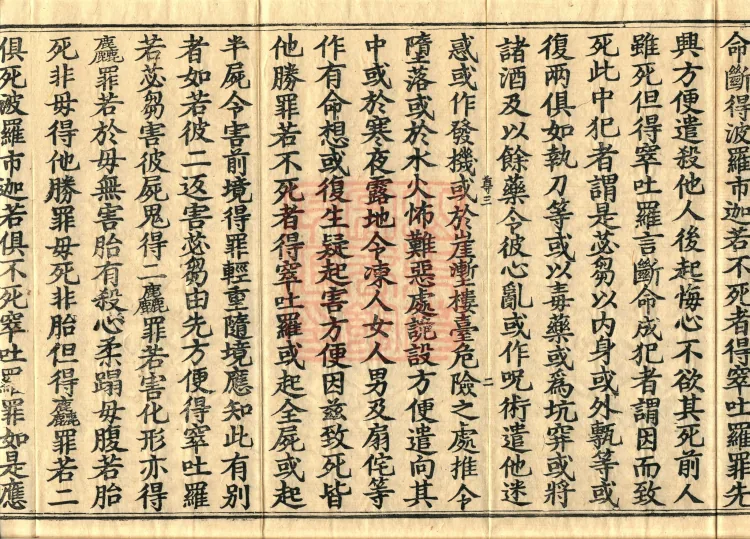 命斷得波羅市迦若不死者得窣吐羅罪先
興方便遣殺他人後起悔心不欲其死前人
雖死但得窣吐羅言斷命成犯者謂因而致
死此中犯者謂是苾芻以內身或外等或
復兩俱如執刀等或以毒藥或爲坑穽或將
諸酒及以餘藥令彼心亂或作呪術遣他迷
尊三 二
惑或作發機或於崖壍樓臺危險之處推令
墮落或於水火怖難惡處詭設方便遣向其
中或於寒夜露地令凍人女人男及扇侘等
作有命想或復生疑起害方便因茲致死皆
他勝罪若不死者得窣吐羅或起全屍或起
半屍令害前境得罪輕重隨境應知此有別
者如若彼二返害苾芻由先方便得窣吐羅
若苾芻害彼屍鬼得二麤罪若害化形亦得
麤罪若於母無害胎有殺心柔蹋母腹若胎
死非母得他勝罪母死非胎但得麤罪若二
俱死波羅市迦若俱不死窣吐羅罪如是應